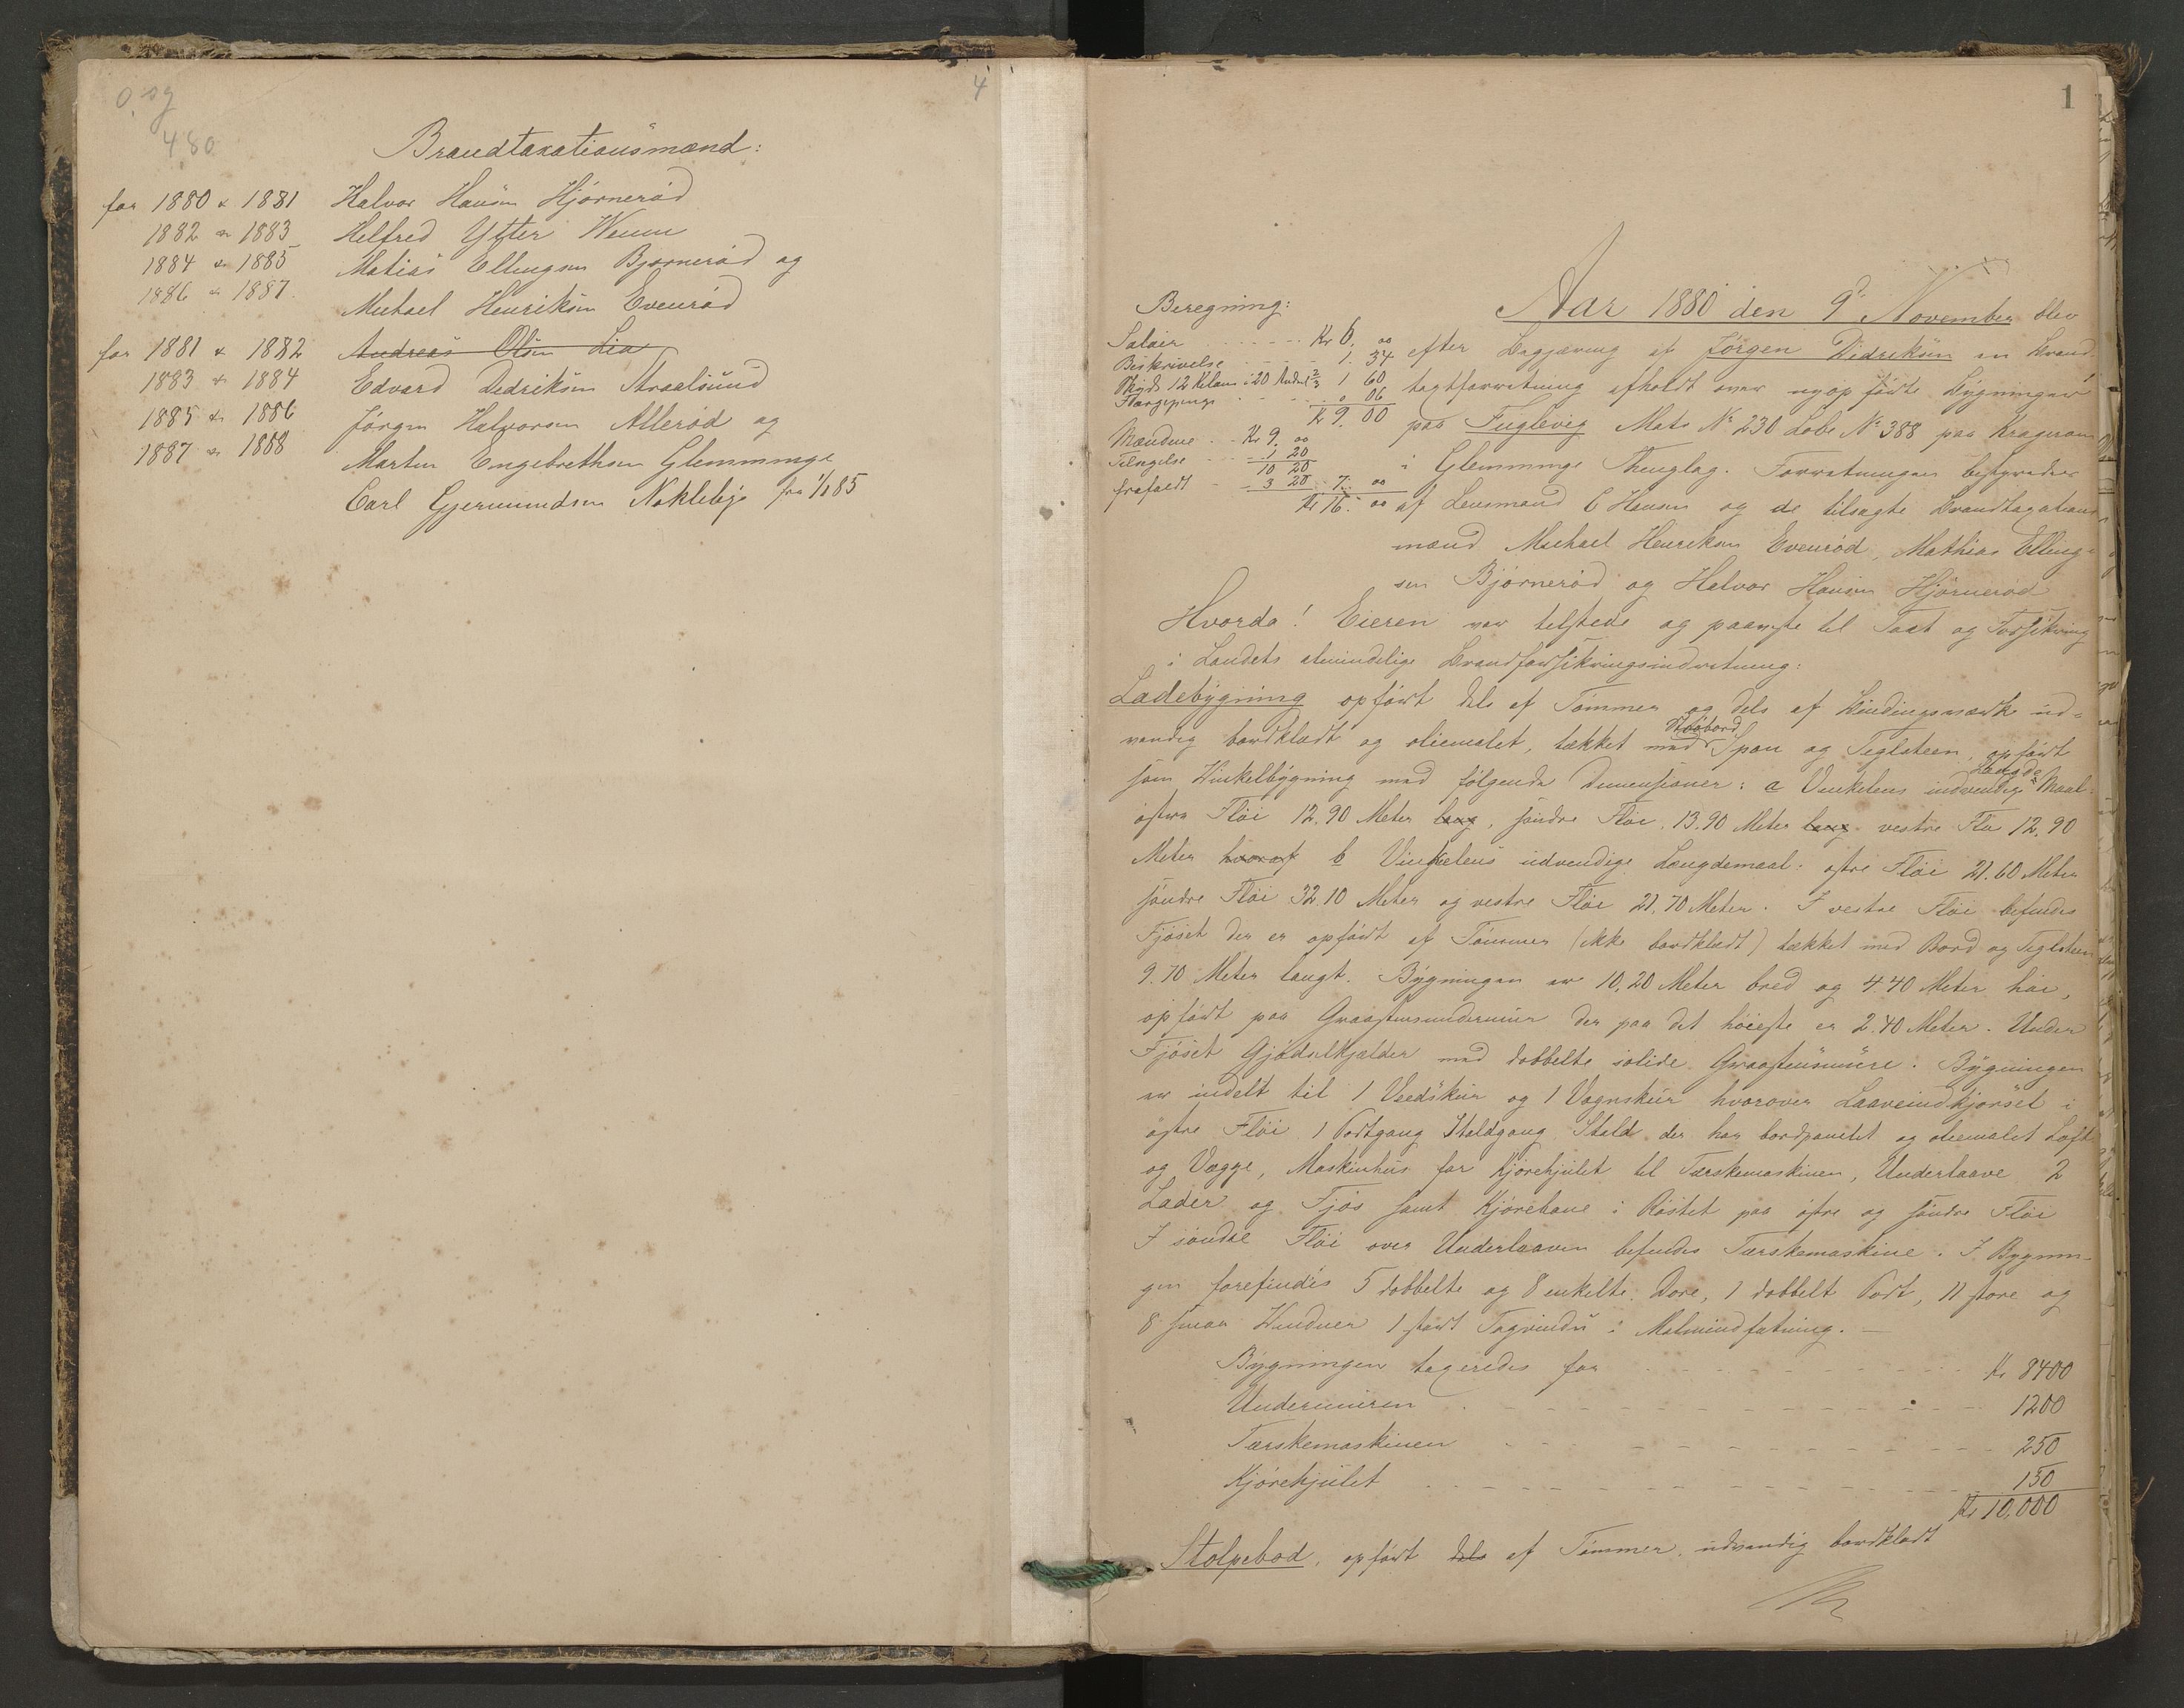 4
480
Brandtaxationsmænd:
for 1880 & 1881 Halvor Hansen Hjørnerød
1882 & 1883 Helfred Ytter Wenn
1884 & 1885 Matias Ellingsen Bjørnerød og
1886 & 1887. Michael Henriksen Evenrød
for 1881 & 1882 Andreas Olsen Lia
1883 & 1884 Edvard Dedriksen Straalsund
1885 & 1886 Jørgen Halvorsen Allerød og
1887 & 1888 Martin Engebrethsen Glemminge
Carl Gjermundsen Nokleby fra 1/1 85
1
Aar 1880 den 9de November blev
Beregning:
Salair Kr 6. 00
Beskrivelse 1. 34
Skyds 12 Kilom i 20 1 60
0 06
Kr 9. 00
Mændene Kr 9. 00
Tilsigelse 1 20
10 20
frafaldt 3 20 7. 00
Kr 16. 00
efter Begjæring af Jørgen Didriksen en Brand-
taxtforretning afholdt over nyopførte Bygninger
paa Fuglevig Mats No 230 Løbe No 388 paa Kragerøen
i Glemminge Thinglag. Forretningen bestyredes
af Lensmand C Hansen og de tilsagte Brandtaxations
mænd Michael Henriksen Evenrød, Mathias Elling-
sen Bjørnerød og Halvor Hansen Hjørnerød
Hvorda! Eieren var tilstede og paaviste til Taxt og Forsikring
i Landets almindelige Brandforsikringsindretning:
Ladebygning opført dels af Tømmer og dels af Bindingsværk ud-
vendig bordklædt og oliemalet, tækket med Spon og Teglsteen, opført
som Vinkelbygning med følgende Dimensioner: a Vinkelens indvendige Længde Maal:
østre Fløi 12.90 Meter lang, søndre Fløi 13.90 Meter lang vestre Fløi 12.90
Meter hvoraf b Vinkelens udvendige Længdemaal: østre Fløi 21.60 Meter
søndre Fløi 32.10 Meter og vestre Fløi 21.70 Meter. I vestre Fløi befindes
Fjøset der er opført af Tømmer (ikke bordklædt) tækket med Bord og Teglsteen
9.70 Meter langt. Bygningen er 10,20 Meter bred og 4.40 Meter høi,
opført paa Graastensundermur der paa det høieste er 2.40 Meter. Under
Fjøset Gjødselkjælder med dobbelte solide Graastensmure. Bygningen
er indelt til 1 Vedskur og 1 Vognskur hvorover Laaveindkjørsel i
østre Fløi 1 Portgang Staldgang Stald der har bordpanelet og oliemalet Loft
og Vægge, Maskinhus for Kjørehjulet til Tærskemaskinen, Underlaave 2
Lader og Fjøs samt Kjørebane i Røstet paa østre og søndre Fløi
I søndre Fløi over Underlaaven befindes Tærskemaskine. I Bygnin-
gen forefindes 5 dobbelte og 8 enkelte Døre, 1 dobbelt Port, 11 store og
8 smaa Vinduer 1 stort Tagvindu i Malmindfatning. —
Bygningen taxeredes for Kr 8400
Undermuren 1200
Tærskemaskinen 250
Kjørehjulet 150
Kr 10,000
Stolpebod, opført dels af Tømmer, udvendig bordklædt